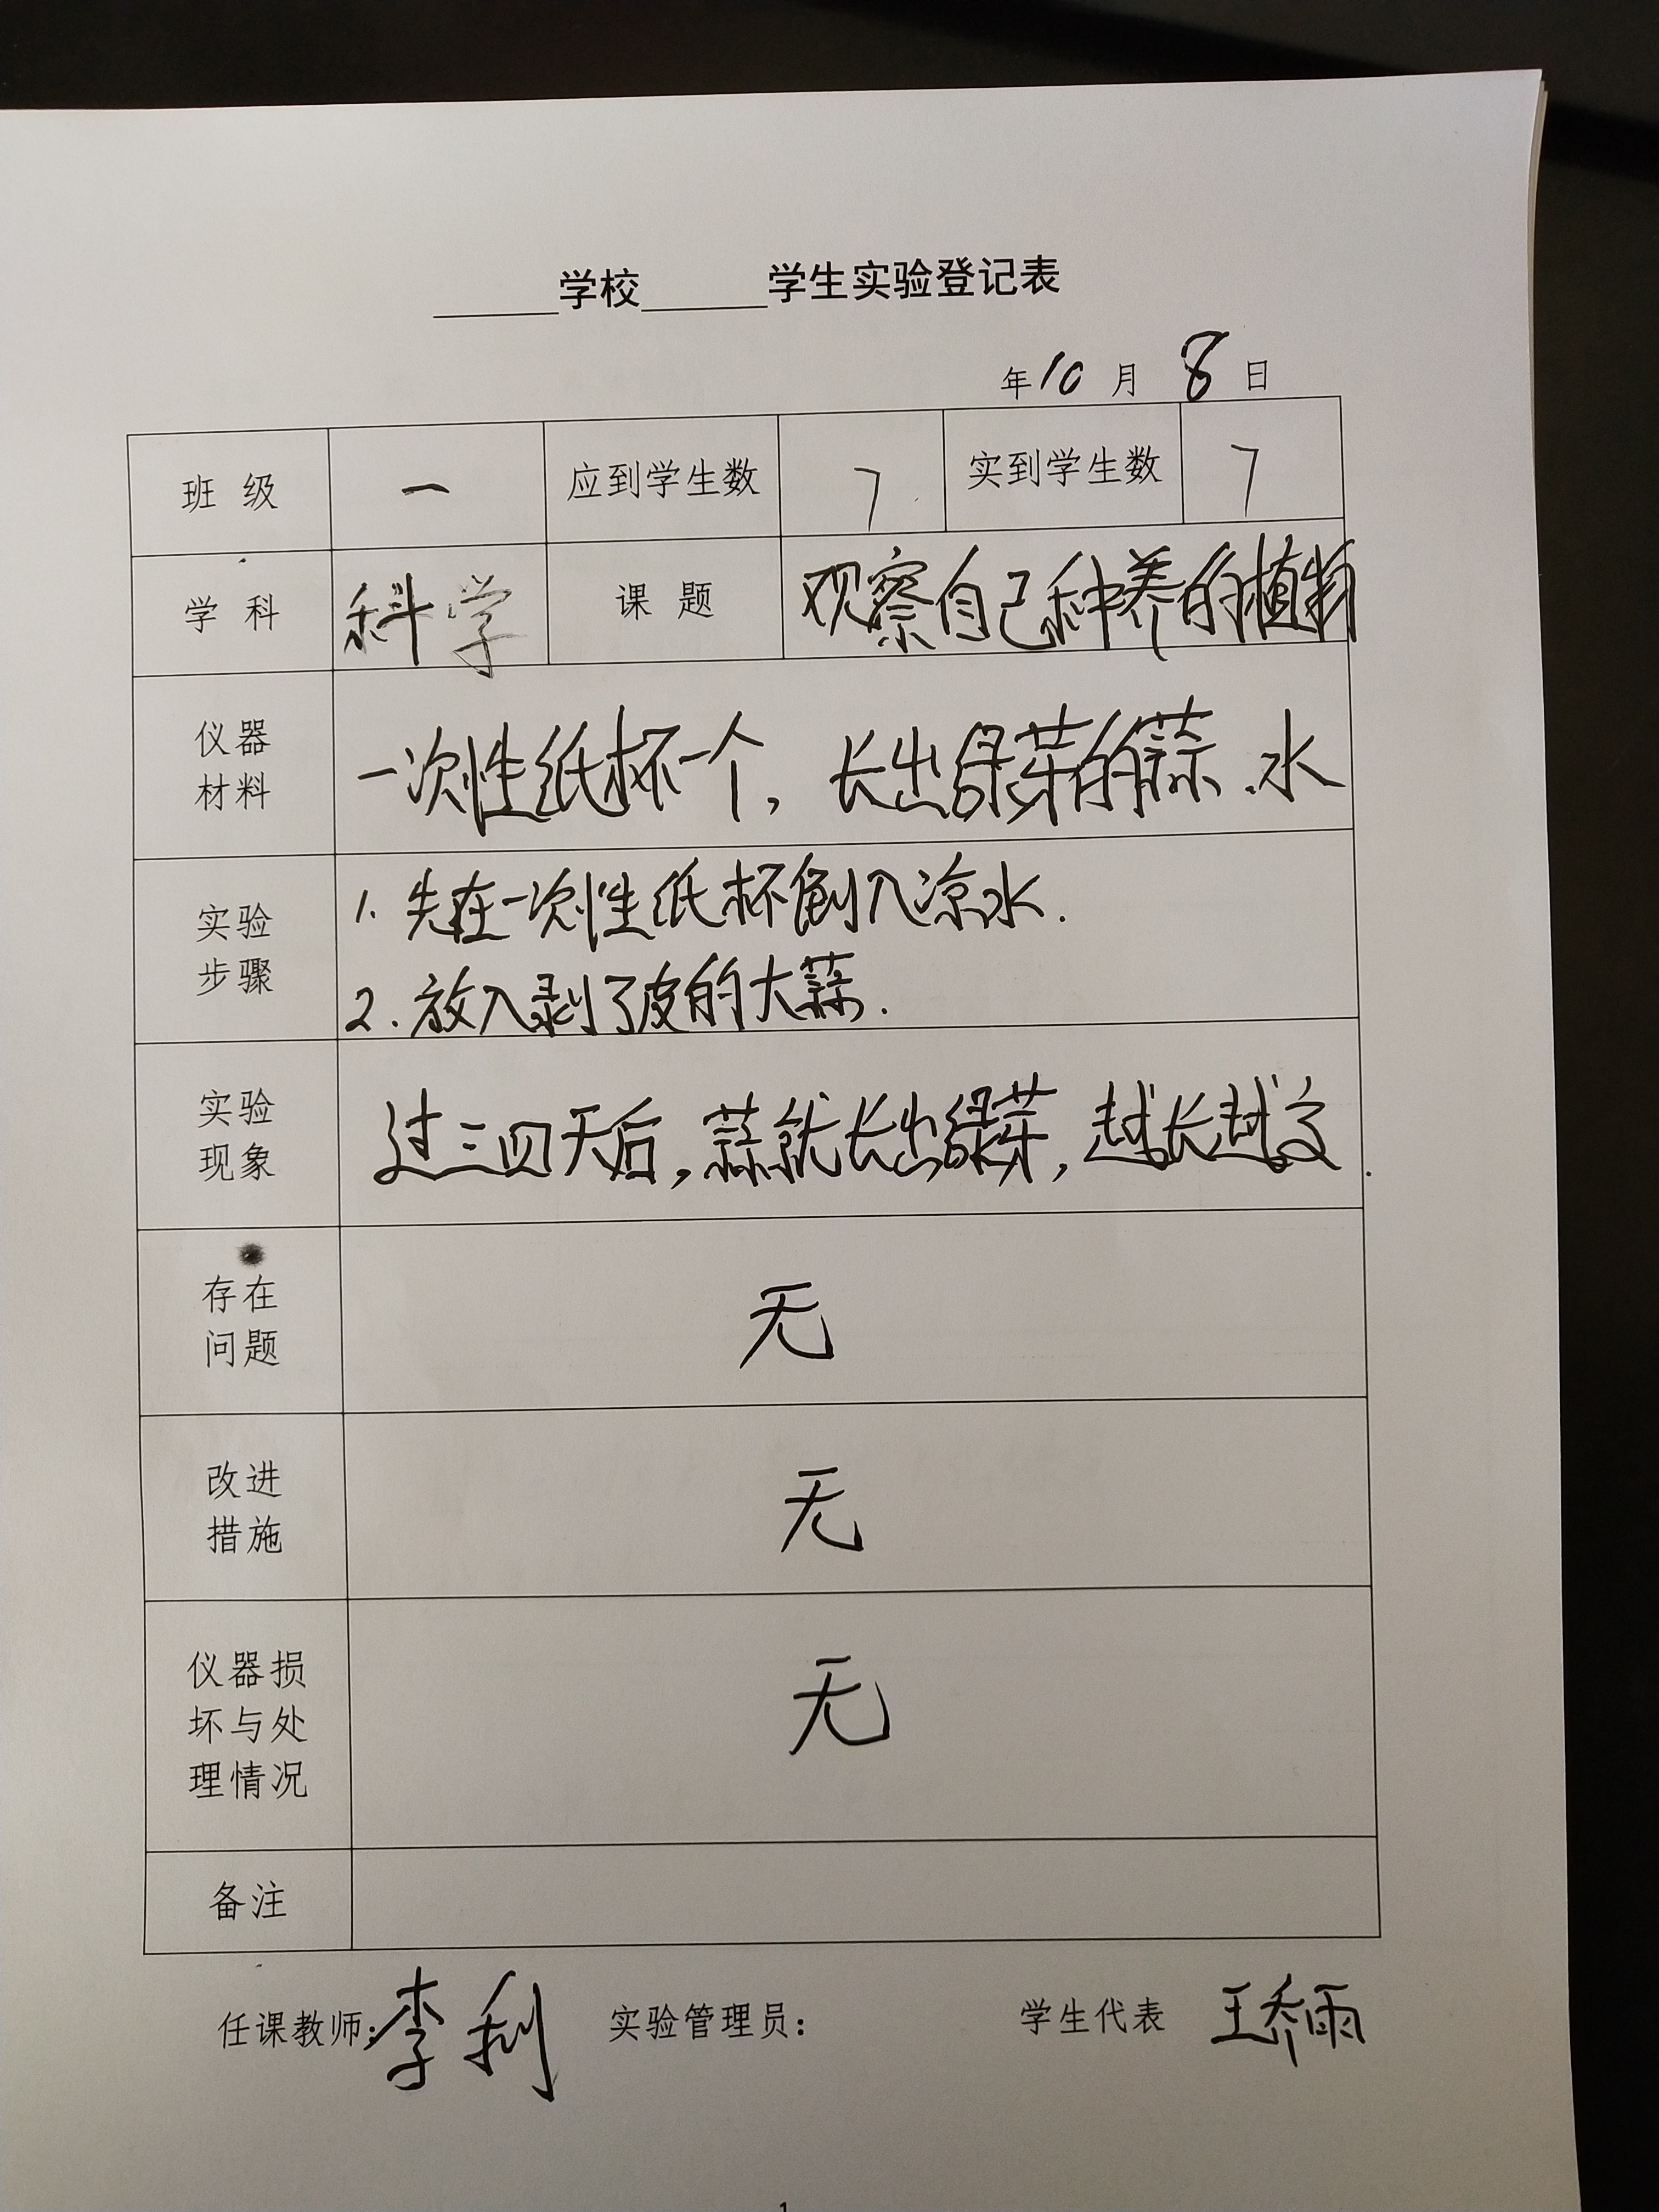 ______学校______学生实验登记表
年10月8日
班 级 一 应到学生数 7 实到学生数 7
学 科 科学 课 题 观察自己种养的植物
仪器
材料
一次性纸杯一个，长出绿芽的蒜、水
实验
步骤
1. 先在一次性纸杯倒入凉水.
2. 放入剥了皮的大蒜.
实验
现象
过三四天后，蒜就长出绿芽，越长越高.
存在
问题
无
改进
措施
无
仪器损
坏与处
理情况
无
备注
任课教师：李利 实验管理员： 学生代表 王乔雨
1